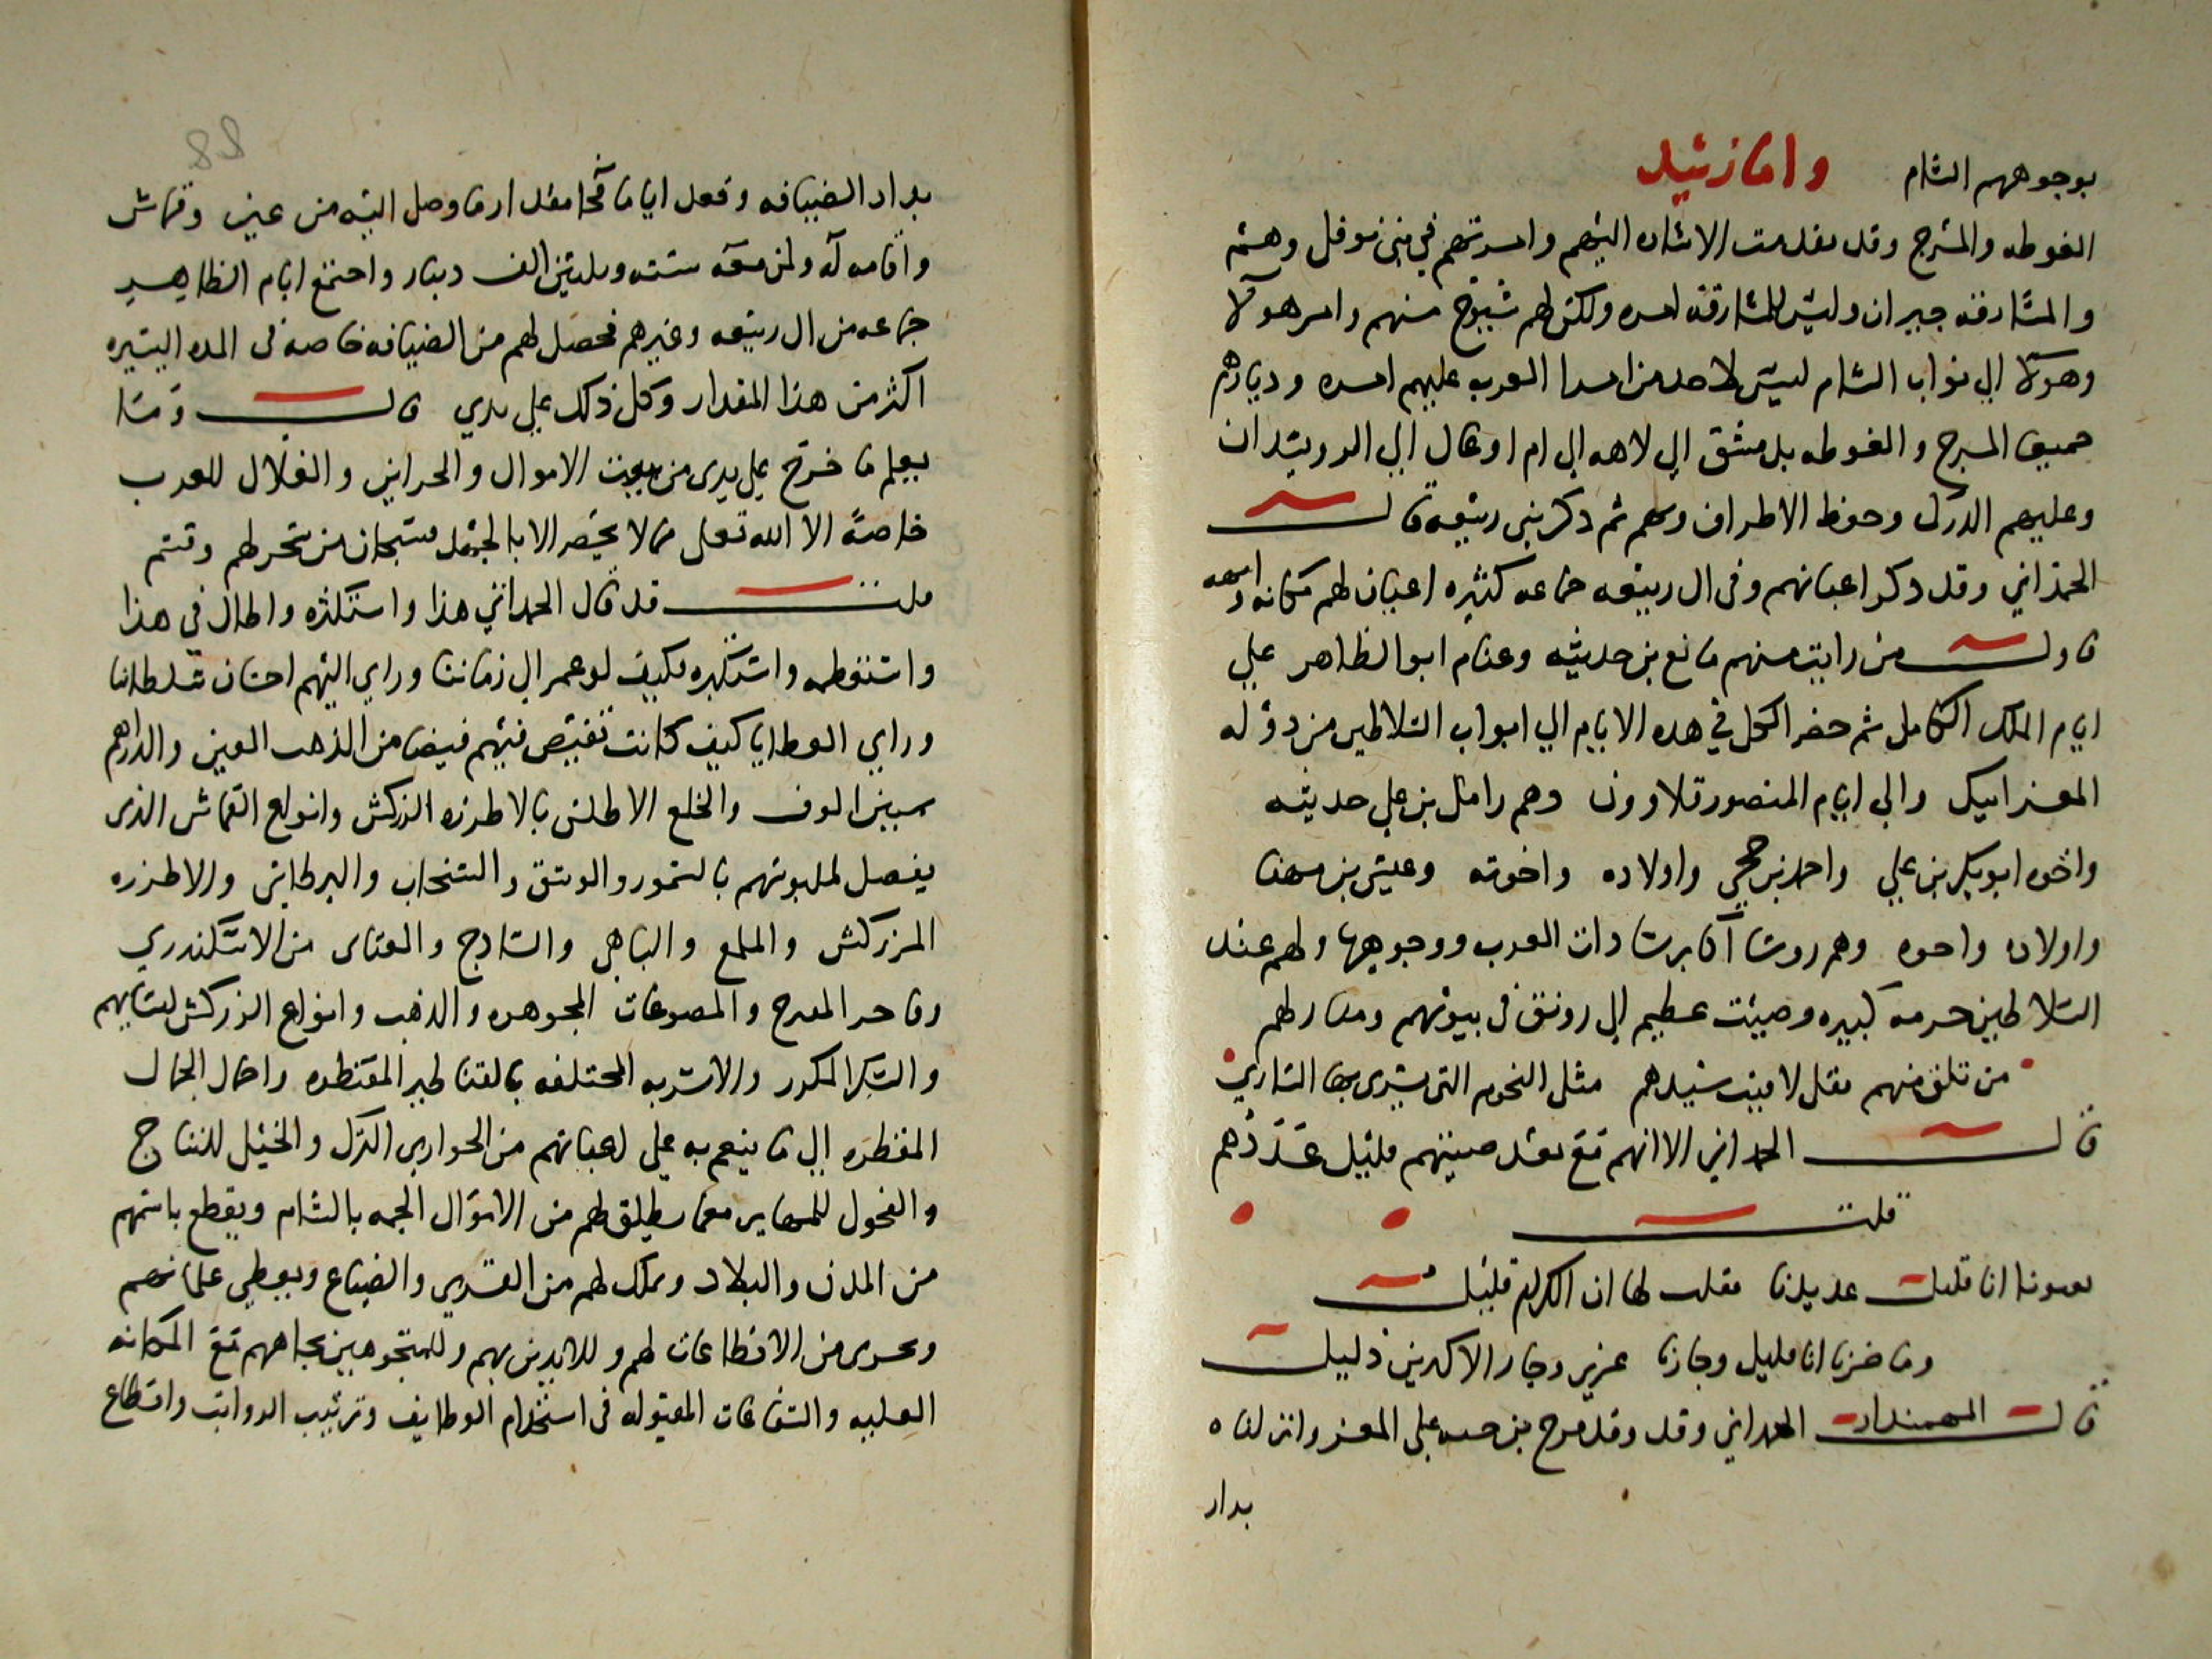 بوجوههم الشام واما زبيد
الغوطه والمرج وقد تقدمت الاشاره اليهم وامرتهم في بني نوفل وهم
والمشارقه جيران وليس للمشارقه امره ولكن لهم شيوخ منهم وامر هولا
وهولا الي نواب الشام ليس لاحد من امرا العرب عليهم امره وديارهم
جميعها المرج والغوطه بدمشق الي لاهه الي ام اوعال الي الدويشدان
وعليهم الدرك وحفظ الاطراف ثم ذكر بني ربيعه قال
الحمداني وقد ذكر اعيانهم وفي ال ربيعه جماعه كثيره اعيان لهم مكانه وابهه
اول من رايت منهم مانع بن حديثه وغنام ابو الظاهر علي
ايام الملك الكامل ثم حضر الكل في هده الايام الي ابواب السلاطين من دوله
المعز ايبك والي ايام المنصور قلاوون وهم زامل بن علي حديثه
واخوه ابو بكر بن علي واحمد بن حجي واولاده واخوته وعيسى بن مهنا
واولاده واخوه وهم روسا اكابر سادات العرب ووجوهها ولهم عند
السلاطين حرمه كبيره وصيت عظيم الي رونق في بيوتهم ومنازلهم
من تلق منهم تقل لاقيت سيدهم مثل النجوم التي يسري بها الساري
قال الحمداني الا انهم مع بعد صيتهم قليل عددهم
قلت
تعيرنا انا قليل عديدنا فقلت لها ان الكرام قليل
وما ضرنا انا قليل وجارنا عزيز وجار الاكثرين ذليل
قال المهمندار الحمداني وقد وفد فرج بن حيه علي المعز وانزلناه
بدار
88
بدار الضيافه وقعد اياما فجا مقدار ما وصل اليه من عين وقماش
واقامه له ولمن معه سته وثلثين الف دينار واجتمع ايام الظاهر
جماعه من ال ربيعه وغيرهم فحصل لهم من الضيافه خاصه في المده اليسيره
اكثر من هذا المقدار وكل ذلك علي يدي قال وما
يعلم ما خرج علي يدي من بيوت الاموال والخزاين والغلال للعرب
خاصةً الا الله تعالي مالا يحصر الا بالجمل فسبحان من سخر لهم وقسم
قلت قد قال الحمداني هذا واستكثره واطال في هذا
واستفظعه واستكبره فكيف لو عمر الي زماننا وراي اليهم احسان سلطاننا
وراي العطايا كيف كانت تفيض فيهم فيضا من الذهب العين والدراهم
بمبين الوف والخلع الاطلس بالاطرزه الزركش وانواع القماش الذي
يفصل لملبوسهم بالسمور والوشق والسنجاب والبرطاسي والاطرزه
المزركش والملمع والباهي والسادج والعتابي من الاسكندري
وفاخر المفرج والمصوغات المجوهره والذهب وانواع الزركش لنسايهم
والسكر المكرر والاشربه المختلفه بالقناطير المقنطره واحمال الجمال
المقطره الي ما ينعم به علي اعيانهم من الجواري الترك والخيل للنتاج
والفحول للمهاير مع ما يطلق لهم من الاموال الجمه بالشام ويقطع باسمهم
من المدن والبلاد ويملك لهم من القري والضياع ويعطي غلمانهم
ويجري من الاقطاعات لهم وللايدين بهم وللمتوجهين بجاههم مع المكانه
العليه والشفاعات المقبوله في استخدام الوظايف وترتيب الرواتب واقطاع